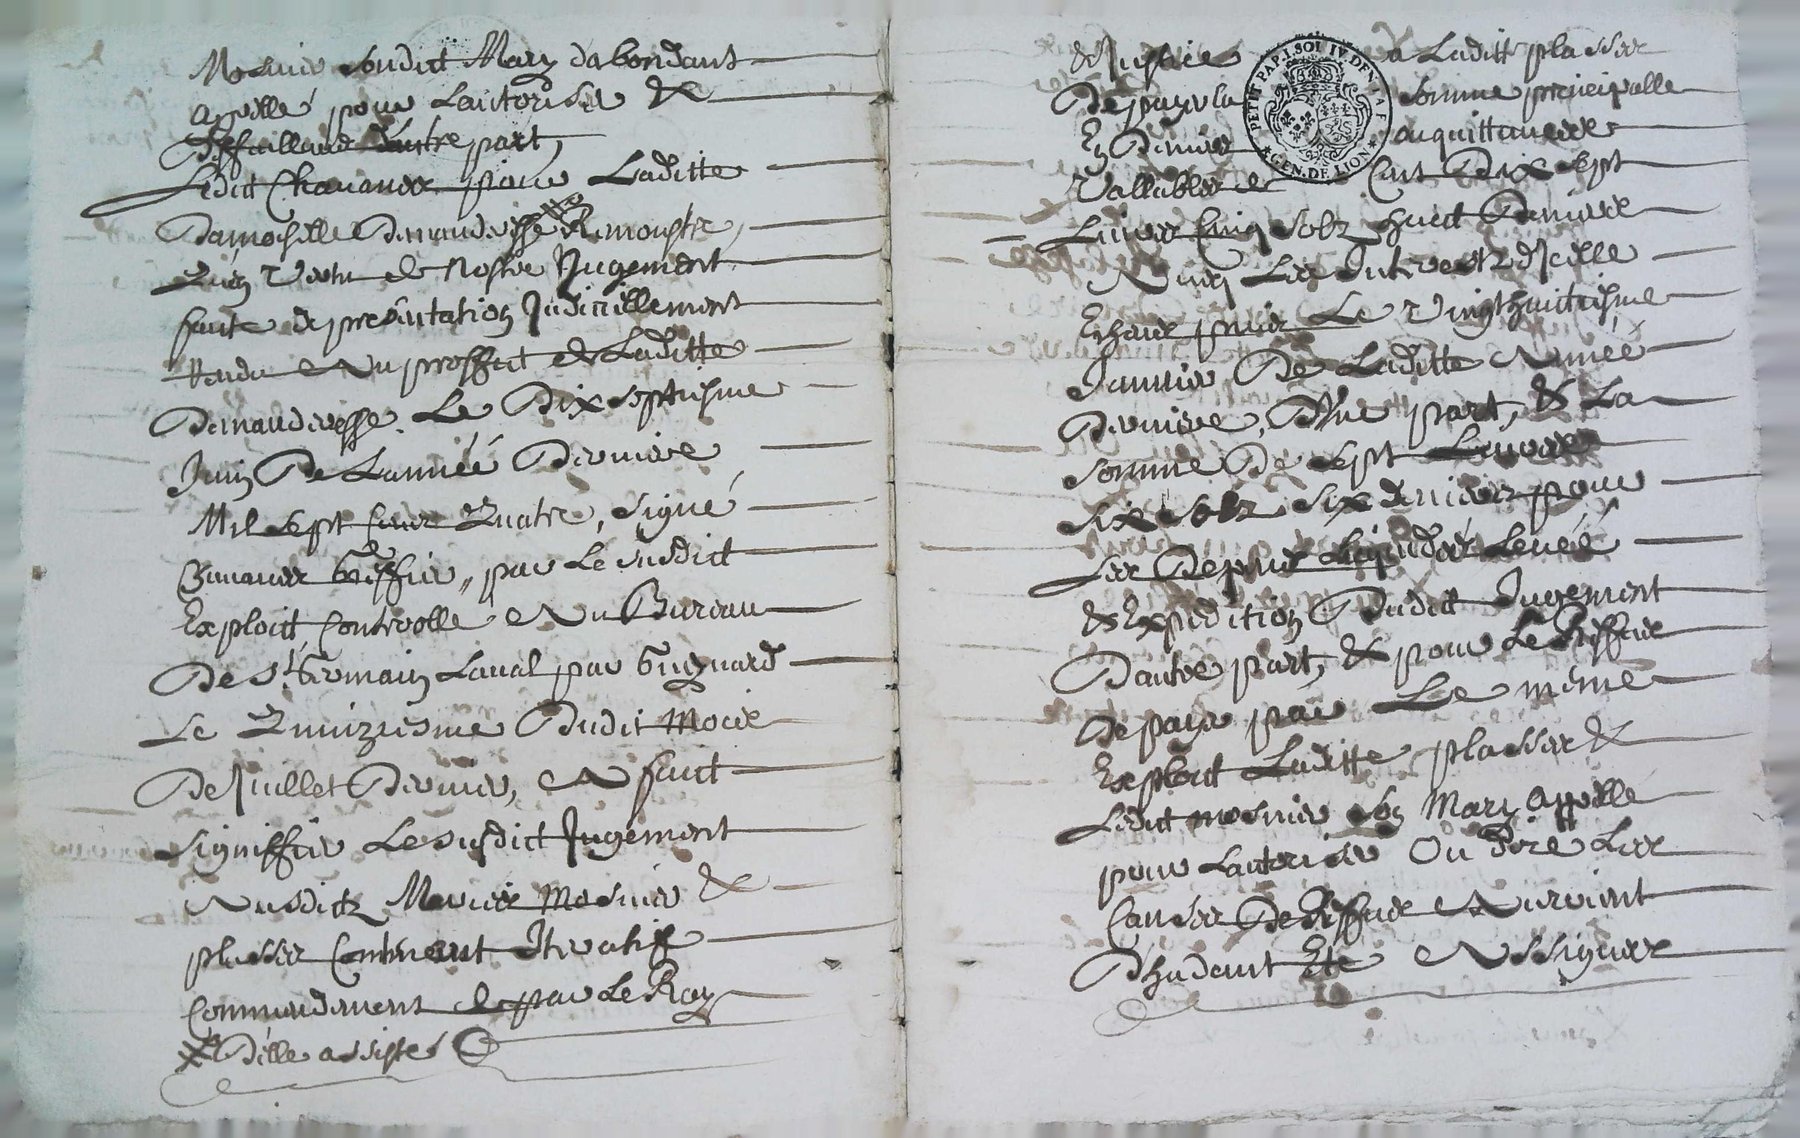 Mosnier sondict Mary dabondant
apellé pour Lautoriser &
Deffaillandz dautre part,
Ledict Chavanes pour Laditte
Damoiselle Demanderesse Remonstre,
Quen Vertu de Nostre Jugement
faute de presentation Judiciellement
Rendu Au proffict de Laditte
Demanderesse Le Dix septiesme
Juin De Lanneé Derniere
Mil sept Cens Quatre, signé
Greffier, par Le susdict
Exploict Controolle Au Bureau
De St Germain Laval par Guignard
Le Quinziesme Dudit Mois
De Juillet Dernier, A faict
signiffier Le susdict Jugement
Ausdictz Mosnier &
plasses Contenant Iteratif
Commandement de par Le Roy
& Dille assistes
& Justice a Laditte plasses
De payer la somme principalle
En Deniers ou quittances
Vallables de Cent Dix sept
Livres Cinq solz huict Deniers
Avec Les Interestz dIcelle
Escheus puis Le Vingthuictiesme
Janvier De Laditte Année
Derniere, Dune part, & La
somme De sept Livres
six solz six deniers pour
Les Depens Liquidés Leveé
& Expedition Dudict Jugement
Dautre part, & pour Le Reffus
De payer par Le même
Exploict Laditte plasses &
Ledict mosnier son Mary Appellé
pour Lautoriser Ou dire Les
Causes De Reffus Auroient
Dhadant Ete Assignes
PETIT PAP. 1. SOL IV. DEN. LA F.
GEN. DE LION